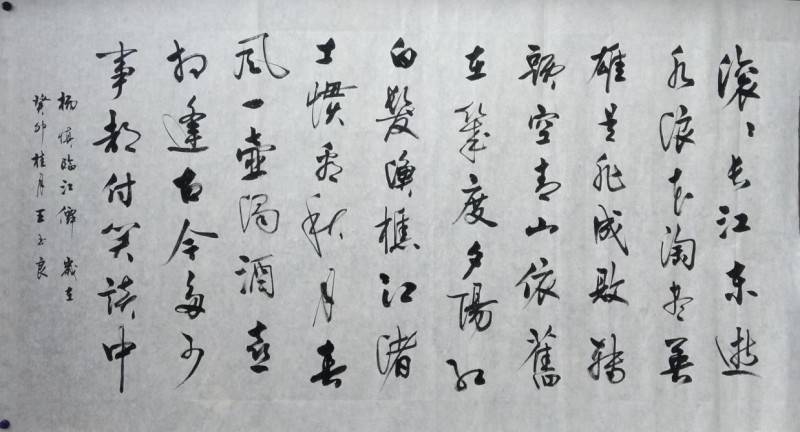 滚〻长江东逝
水浪花淘尽英
雄是非成败转
頭空青山依舊
在幾度夕陽红
白髮渔樵江渚
士惯看秋月春
風一壶濁酒喜
相逢古今多少
事都付笑谈中
杨慎臨江仙 歲在
癸卯桂月王玉良